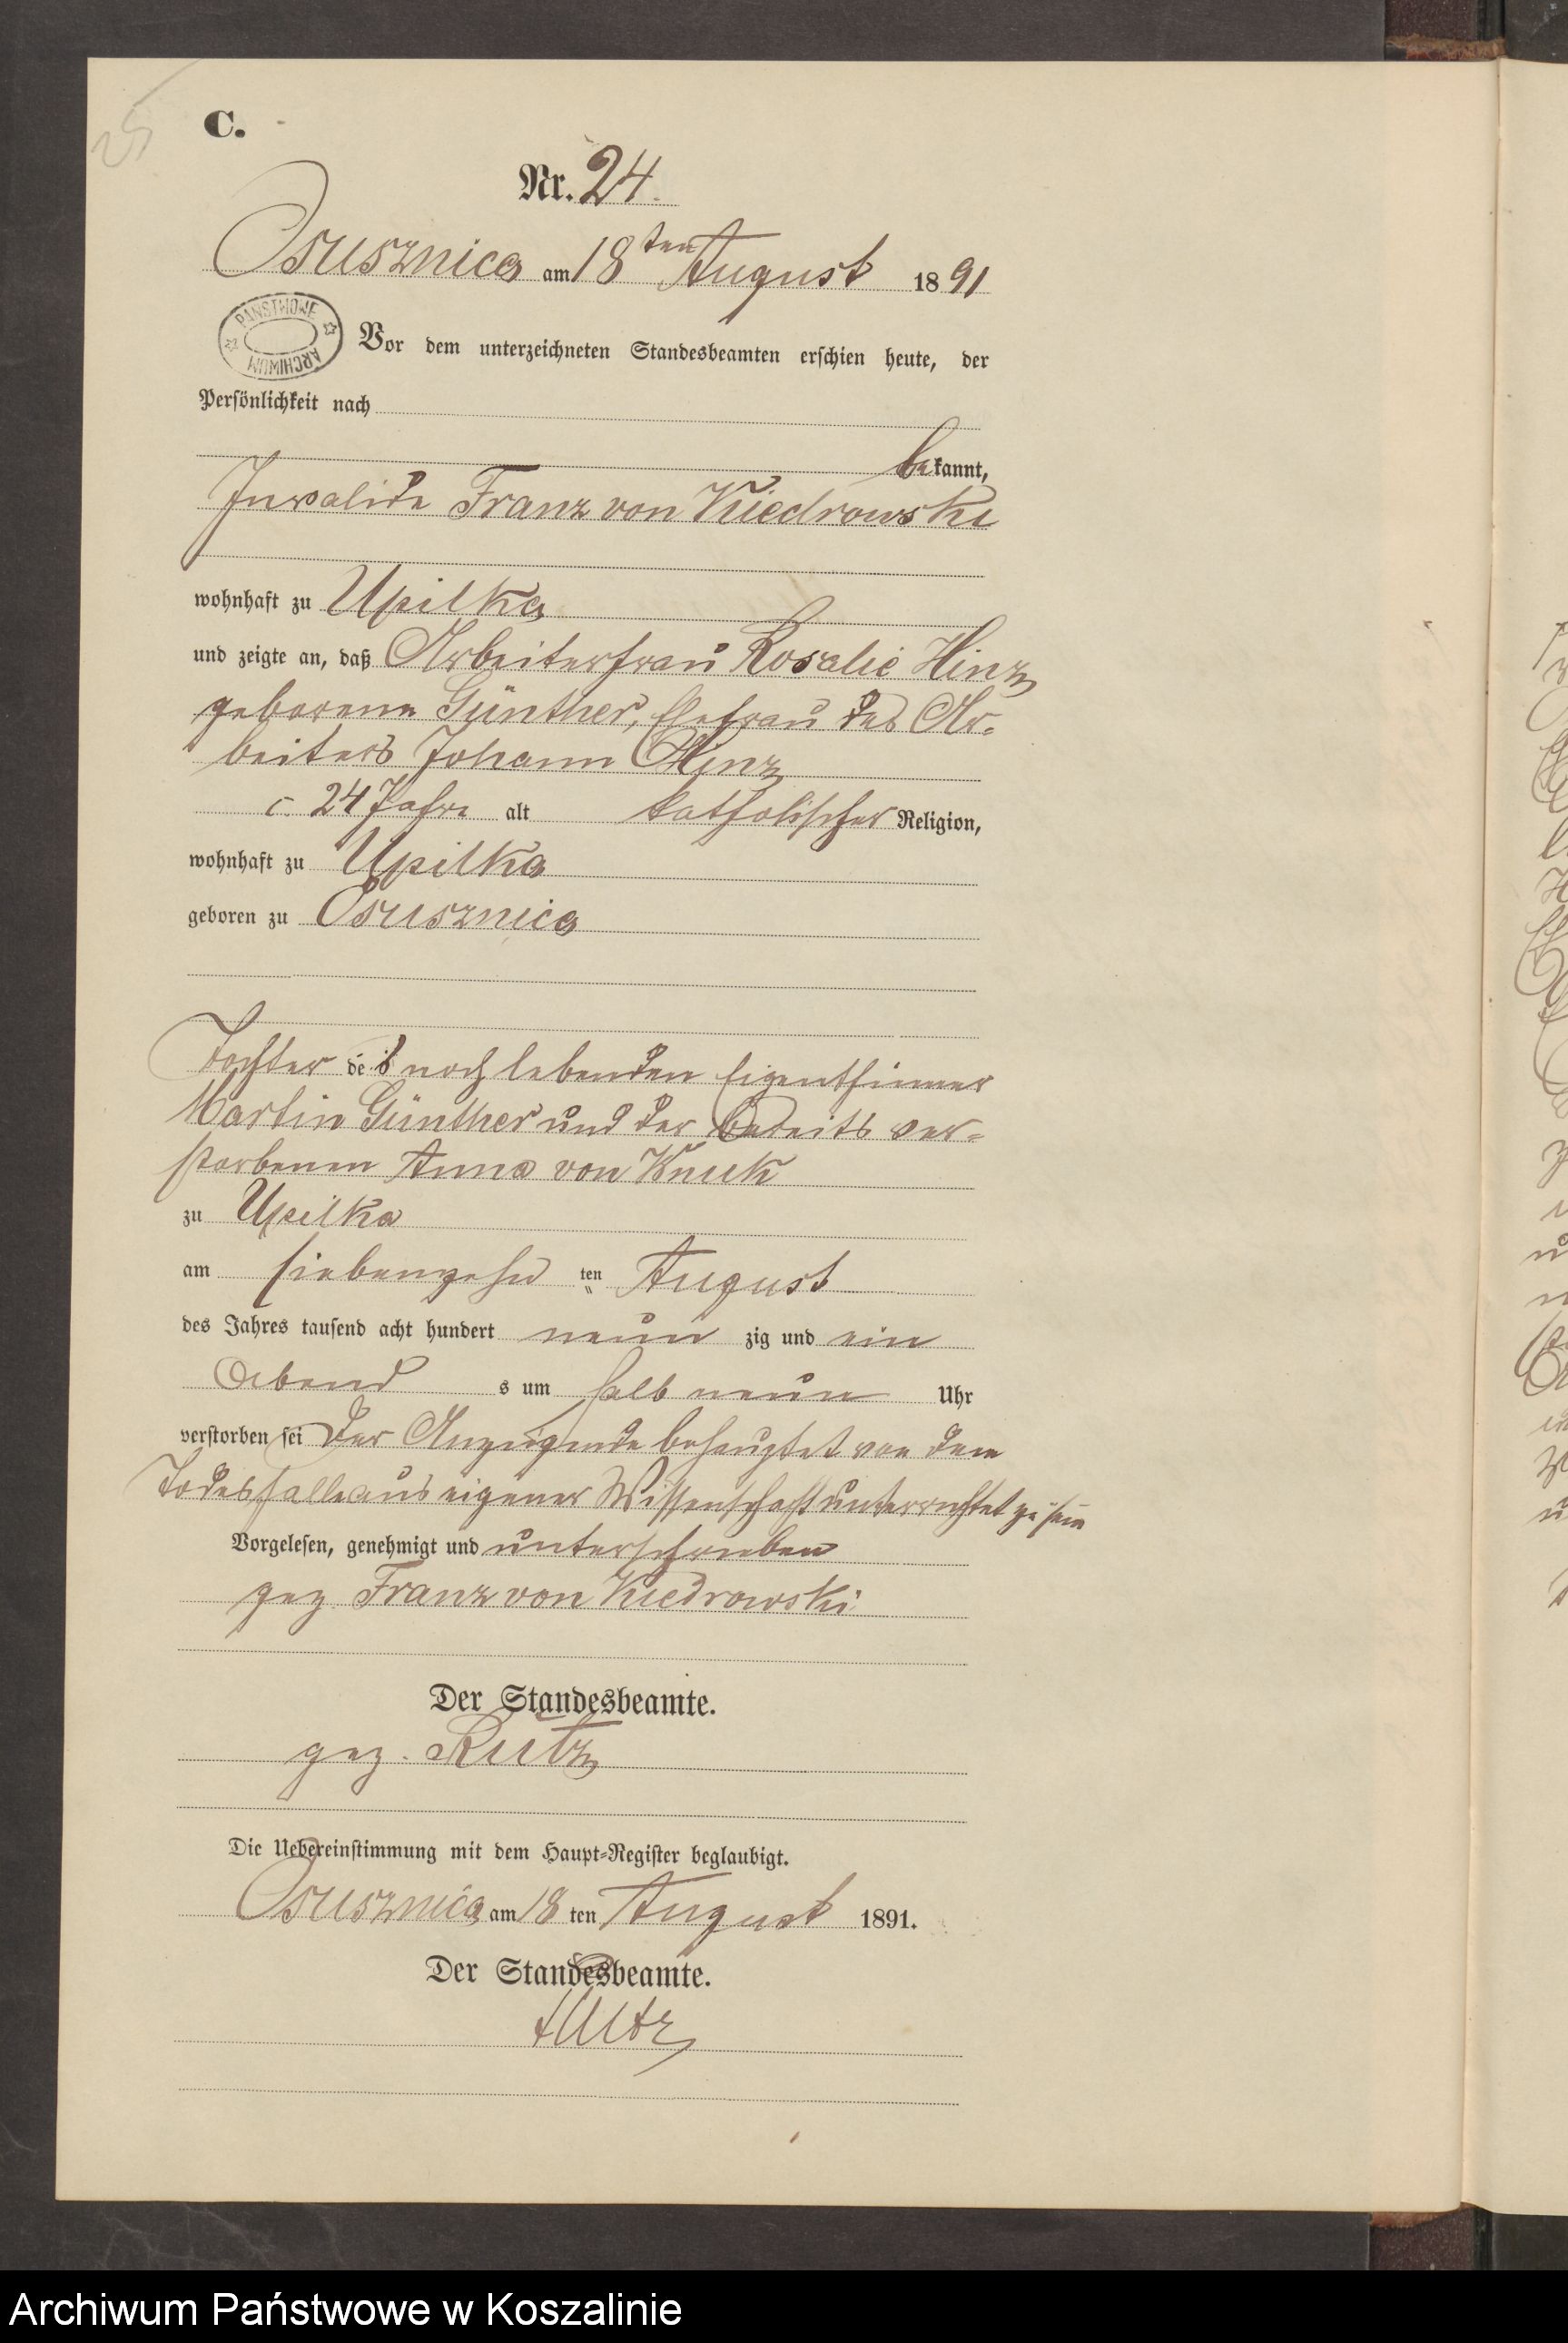 25
C.
Nr. 24.
Osusznica am 18ten August 1891
PAŃSTWOWE ARCHIWUM
Vor dem unterzeichneten Standesbeamten erschien heute, der
Persönlichkeit nach
bekannt,
Invalide Franz von Kiedrowski
wohnhaft zu Upilka
und zeigte an, daß Arbeiterfrau Rosalie Hinz
geborene Günther, Ehefrau des Ar-
beiters Johann Hinz
c. 24 Jahre alt katholischer Religion,
wohnhaft zu Upilka
geboren zu Osusznica
Tochter des noch lebenden Eigenthümer
Martin Günther und der bereits ver-
storbenen Anna von
zu Upilka
am siebenzehn ten August
des Jahres tausend acht hundert neun zig und ein
Abend s um halb neun Uhr
verstorben sei Der Anzeigende behauptet von dem
Todesfalle aus eigener Wissenschaft unterrichtet zu sein
Vorgelesen, genehmigt und unterschrieben
gez. Franz von Kiedrowski
Der Standesbeamte.
gez. Rutz
Die Uebereinstimmung mit dem Haupt-Register beglaubigt.
Osusznica am 18 ten August 1891.
Der Standesbeamte.
Rutz
Archiwum Państwowe w Koszalinie